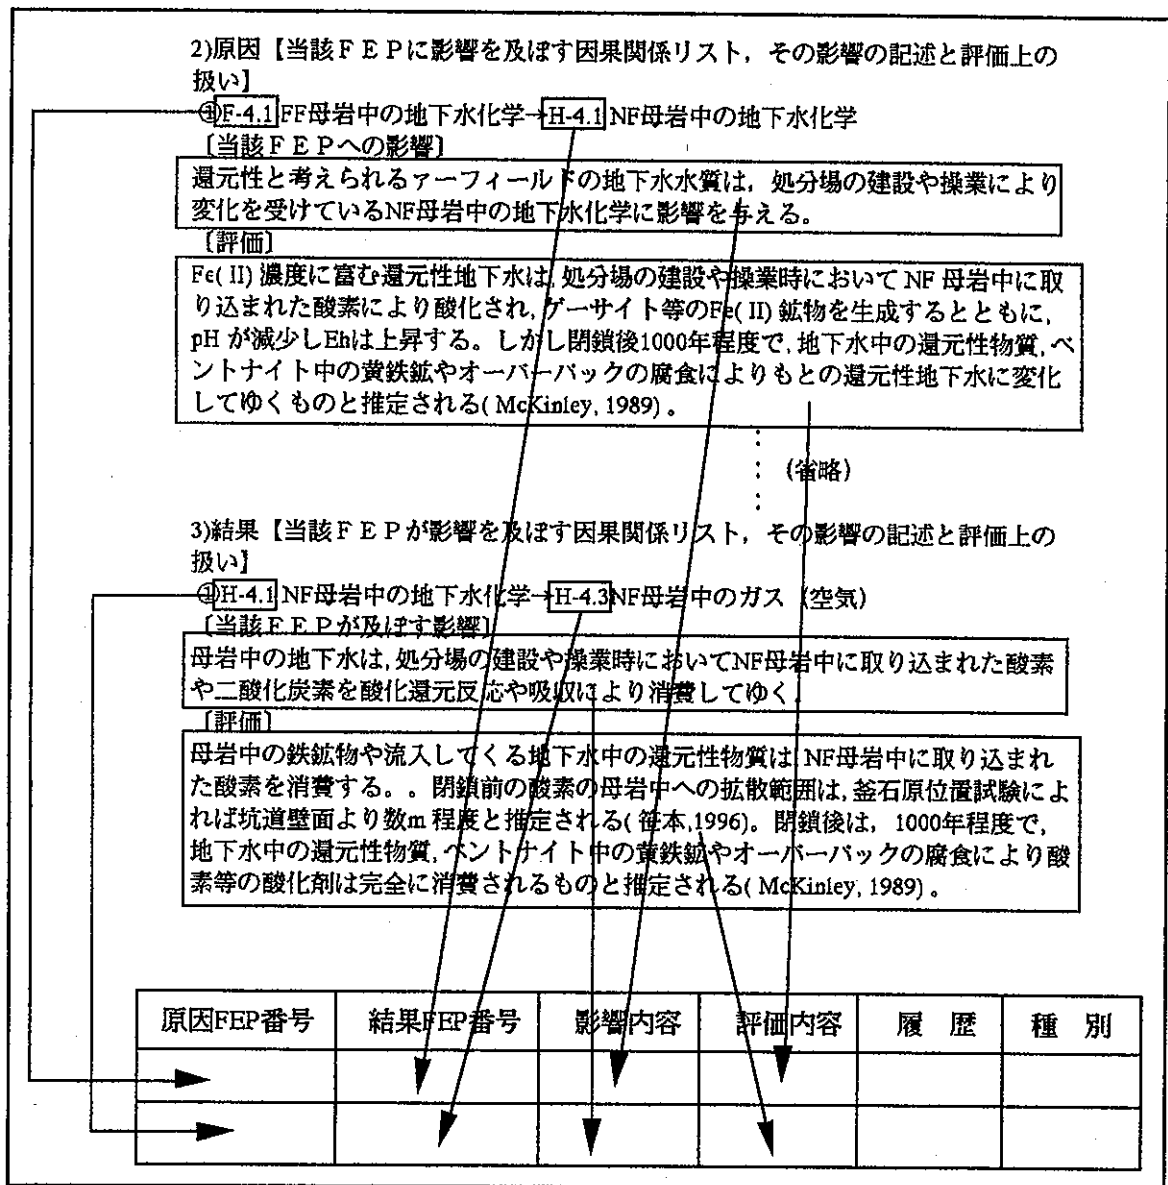 2)原因【当該ＦＥＰに影響を及ぼす因果関係リスト，その影響の記述と評価上の
扱い】
①F-4.1 FF母岩中の地下水化学→H-4.1 NF母岩中の地下水化学
〔当該ＦＥＰへの影響〕
還元性と考えられるァーフィールドの地下水水質は，処分場の建設や操業により
変化を受けているNF母岩中の地下水化学に影響を与える。
〔評価〕
Fe( II) 濃度に富む還元性地下水は,処分場の建設や操業時において NF 母岩中に取
り込まれた酸素により酸化され,ゲーサイト等のFe( II) 鉱物を生成するとともに,
pH が減少しEhは上昇する。しかし閉鎖後1000年程度で,地下水中の還元性物質,ベ
ントナイト中の黄鉄鉱やオーバーパックの腐食によりもとの還元性地下水に変化
してゆくものと推定される( McKinley, 1989) 。
(省略)
3)結果【当該ＦＥＰが影響を及ぼす因果関係リスト，その影響の記述と評価上の
扱い】
①H-4.1 NF母岩中の地下水化学→H-4.3 NF母岩中のガス（空気）
〔当該ＦＥＰが及ぼす影響〕
母岩中の地下水は,処分場の建設や操業時においてNF母岩中に取り込まれた酸素
や二酸化炭素を酸化還元反応や吸収により消費してゆく。
〔評価〕
母岩中の鉄鉱物や流入してくる地下水中の還元性物質は,NF母岩中に取り込まれ
た酸素を消費する。。閉鎖前の酸素の母岩中への拡散範囲は,釜石原位置試験によ
れば坑道壁面より数m 程度と推定される( 笹本,1996)。閉鎖後は，1000年程度で,
地下水中の還元性物質,ベントナイト中の黄鉄鉱やオーバーパックの腐食により酸
素等の酸化剤は完全に消費されるものと推定される( McKinley, 1989) 。
原因FEP番号 結果FEP番号 影響内容 評価内容 履　歴 種　別